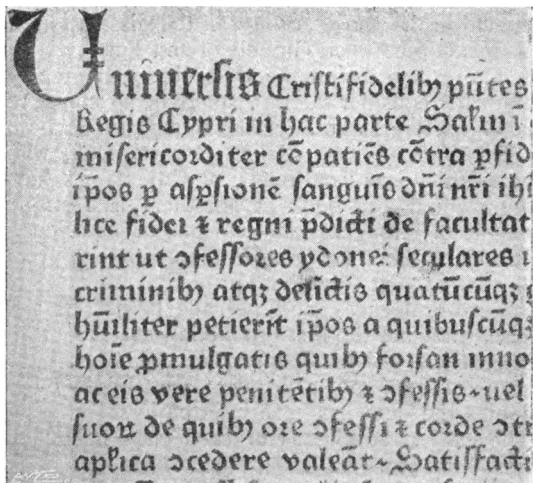 Uniuersis Cristifidelibꝫ pñtes
Regis Cypri in hac parte Salm̄ ī
misericorditer cōpatiēs cōtra ꝑfid
ip̄os ꝑ aspsionē sanguīs dn̄i nr̄i ihū
hce fidei ⁊ regni p̄dicti de facultat
rint ut ꝯfessores ydonei seculares
criminibꝫ atqꝫ delictis quātūcūqꝫ
hūiliter petierīt ip̄os a quibuscūqꝫ
hoīe ꝓmulgatis quibꝫ forsan inno
ac eis vere penitētibꝫ ⁊ ꝯfessis uel
suoꝝ de quibꝫ ore ꝯfessi ⁊ corde ꝯtr
apl̄ica ꝯcedere valeāt Satiffacti